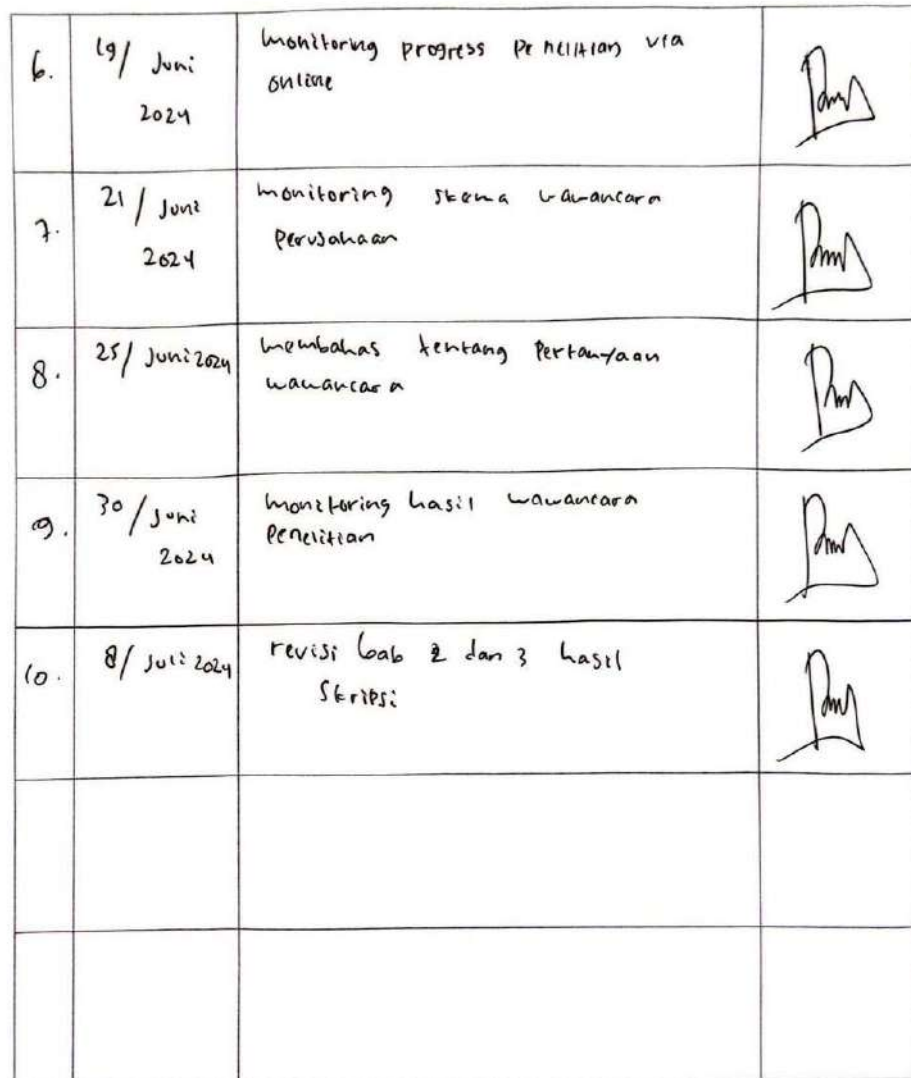 6.
19/ Juni
2024
monitoring progress penelitian via
online
7.
21/ Juni
2024
monitoring skema wawancara
perusahaan
8.
25/ Juni 2024
membahas tentang Pertanyaan
wawancara
9.
30/ Juni
2024
monitoring hasil wawancara
Penelitian
10.
8/ Juli 2024
revisi bab 2 dan 3 hasil
Skripsi